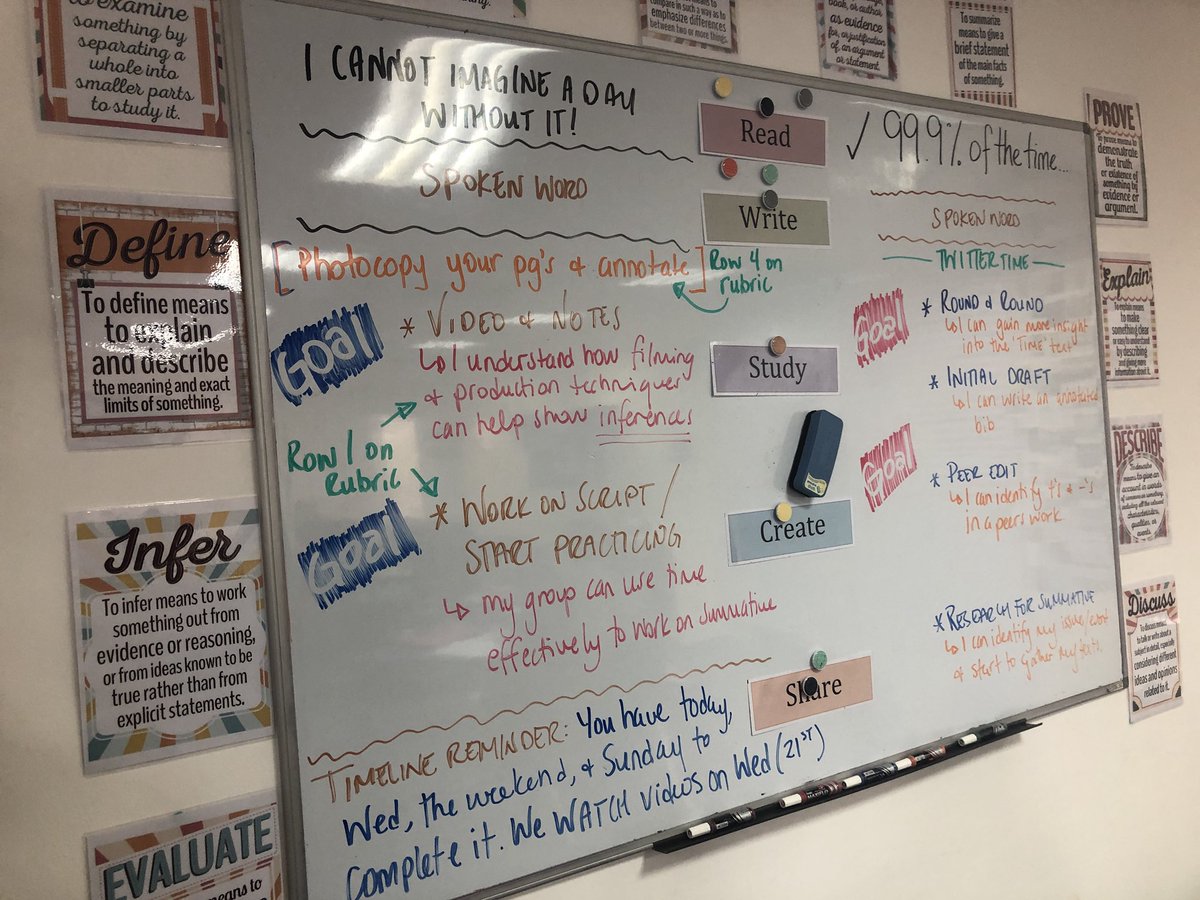 to examine
something by
separating a
whole into
smaller parts
to study it.
Define
To define means
to explain
and describe
the meaning and exact
limits of something.
Infer
To infer means to work
something out from
evidence or reasoning,
or from ideas known to be
true rather than from
explicit statements.
EVALUATE
I CANNOT IMAGINE A DAY
WITHOUT IT!
SPOKEN WORD
[Photocopy your pg's & annotate]
Row 4 on
rubric
Goal
* VIDEO & NOTES
↳ I understand how filming
& production techniques
can help show inferences
Row 1 on
Rubric
Goal
* WORK ON SCRIPT /
START PRACTICING
↳ my group can use time
effectively to work on summative
TIMELINE REMINDER: You have today,
Wed, the weekend, & Sunday to
complete it. We WATCH videos on Wed (21ST)
Read
Write
Study
Create
Share
✓ 99.9% of the time...
SPOKEN WORD
TWITTER TIME
Goal
* ROUND & ROUND
↳ I can gain more insight
into the 'TIME' text
* INITIAL DRAFT
↳ I can write an annotated
bib
Goal
* PEER EDIT
↳ I can identify +'s & -'s
in a peers work
* RESEARCH FOR SUMMATIVE
↳ I can identify my issue/event
& start to gather my texts.
compare in such a way as to
emphasize differences
between two or more things.
book, or author
as evidence
for, or justification
of an argument
or statement.
To summarize
means to give a
brief statement
of the main facts
of something.
PROVE
To prove means to
demonstrate
the truth
or existence of
something by
evidence or
argument.
Explain
To explain means
to make
something clear
or easy to understand
by describing
and giving more
information about it.
DESCRIBE
To describe
means to give an
account in words
Discuss
To discuss means
to talk or write about a
subject in detail, especially
considering different
ideas and opinions
related to it.